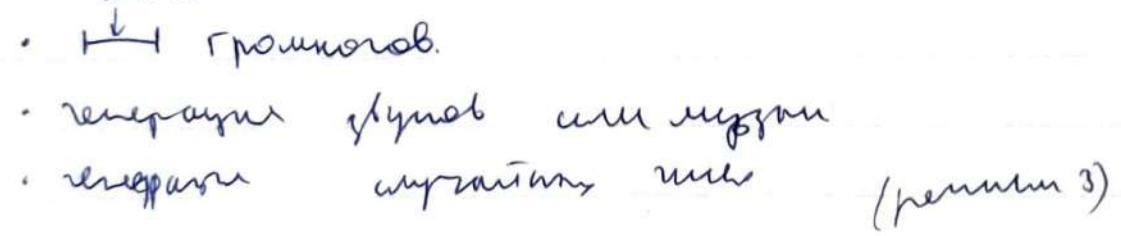 · громкогов.
· генерация звуков или музыки
· генерация случайных чисел (режим 3)